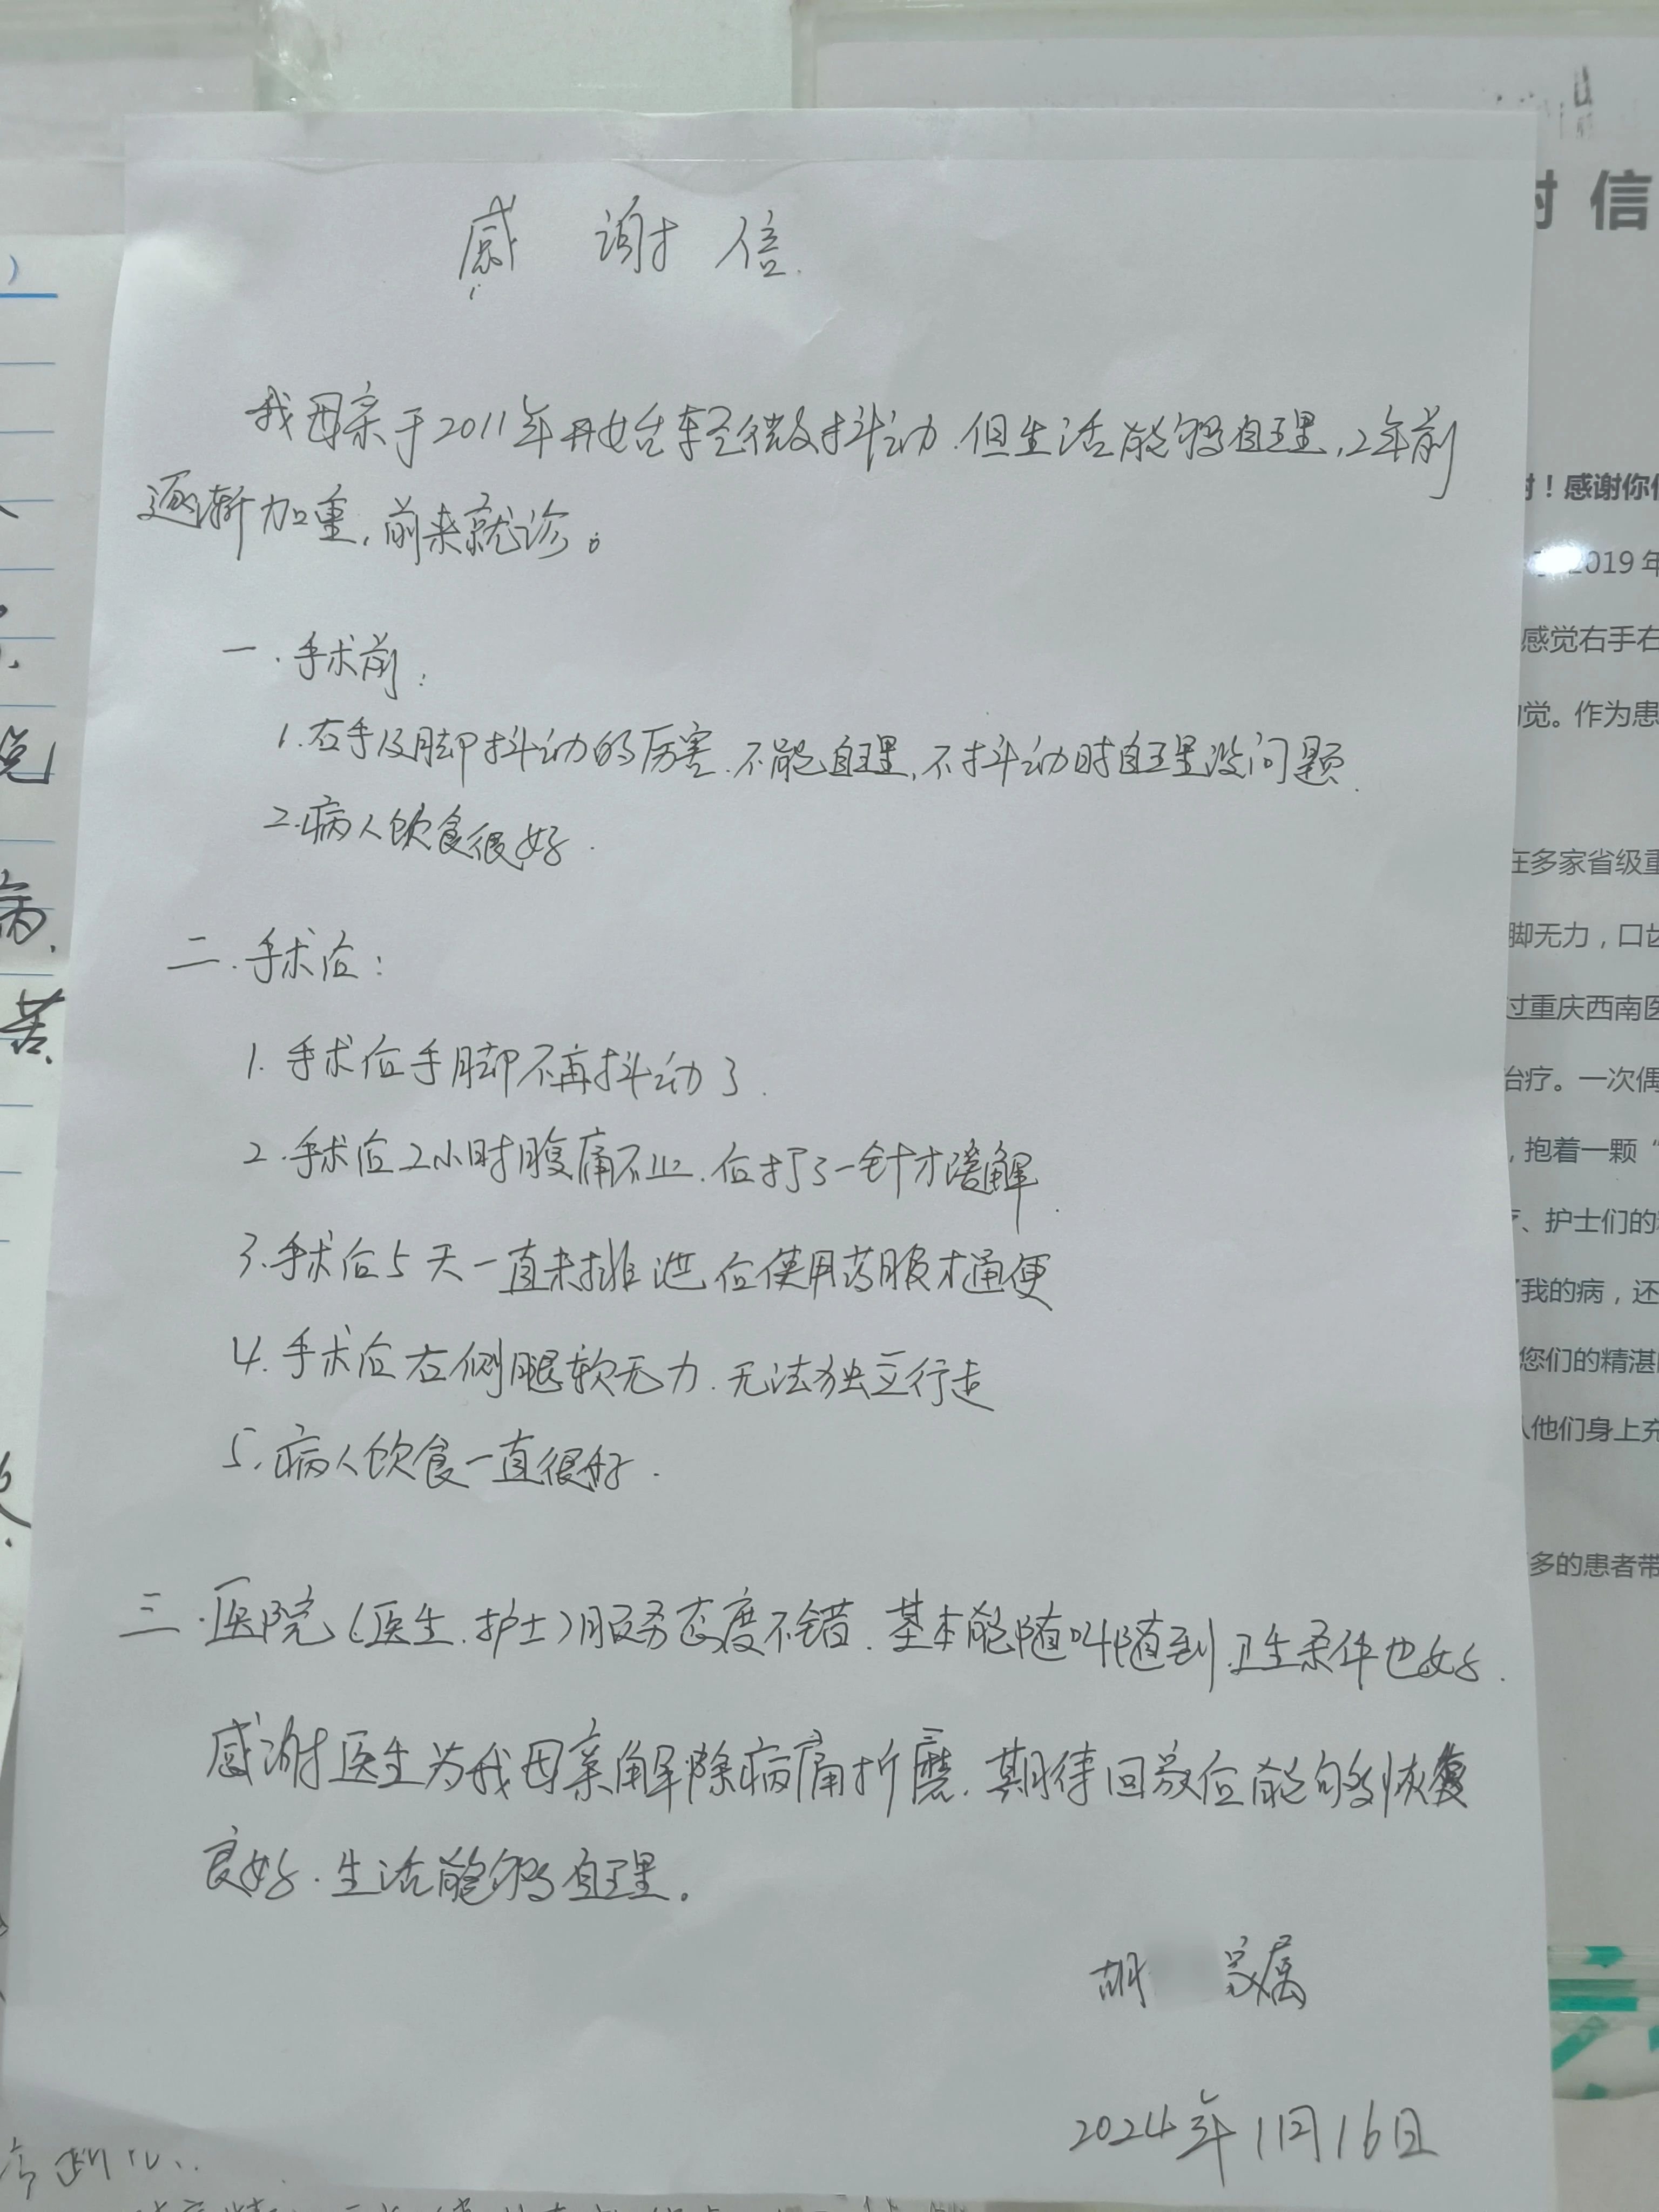 感谢信
我母亲于2011年开始轻微抖动.但生活能够自理,2年前
逐渐加重,前来就诊。
一.手术前:
1.右手及脚抖动的厉害.不能自理,不抖动时自理没问题.
2.病人饮食很好.
二.手术后:
1.手术后手脚不再抖动了.
2.手术后2小时腹痛不止.后打了一针才缓解.
3.手术后5天一直未排泄,后使用药服才通便
4.手术后右侧腿软无力.无法独立行走
5.病人饮食一直很好.
三.医院(医生.护士)服务态度不错.基本能随叫随到.卫生条件也好.
感谢医生为我母亲解除病痛折磨.期待回家后能够恢复
良好.生活能够自理.
胡 家属
2024年1月16日
谢信
!感谢你
2019年
感觉右手右
觉。作为患
在多家省级重
脚无力,口齿
过重庆西南医
治疗。一次偶
,抱着一颗“
、护士们的
我的病,还
您们的精湛
他们身上充
多的患者带
病.
苦.